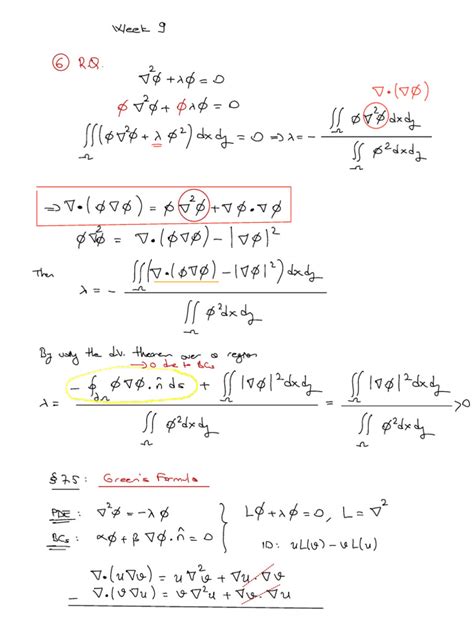 Week 9
⑥ R.Q.
∇²ϕ + λϕ = 0
ϕ∇²ϕ + ϕλϕ = 0
∇•(∇ϕ)
∬_Ω (ϕ∇²ϕ + λϕ²) dxdy = 0 ⇒ λ = - ∬_Ω ϕ∇²ϕ dxdy / ∬_Ω ϕ² dxdy
⇒ ∇•(ϕ∇ϕ) = ϕ∇²ϕ + ∇ϕ•∇ϕ
ϕ∇²ϕ = ∇•(ϕ∇ϕ) - |∇ϕ|²
Then
λ = - ∬_Ω (∇•(ϕ∇ϕ) - |∇ϕ|²) dxdy / ∬_Ω ϕ² dxdy
By using the div. theorem over a region
→ 0 due to BCs
λ = (- ∮_∂Ω ϕ∇ϕ.n̂ ds + ∬_Ω |∇ϕ|² dxdy) / ∬_Ω ϕ² dxdy = ∬_Ω |∇ϕ|² dxdy / ∬_Ω ϕ² dxdy > 0
§7.5 : Green's Formula
PDE : ∇²ϕ = -λϕ } Lϕ + λϕ = 0, L = ∇²
BCs : αϕ + β∇ϕ.n̂ = 0 } ID: uL(v) - vL(u)
∇•(u∇v) = u∇²v + ∇u.∇v
- ∇•(v∇u) = v∇²u + ∇v.∇u